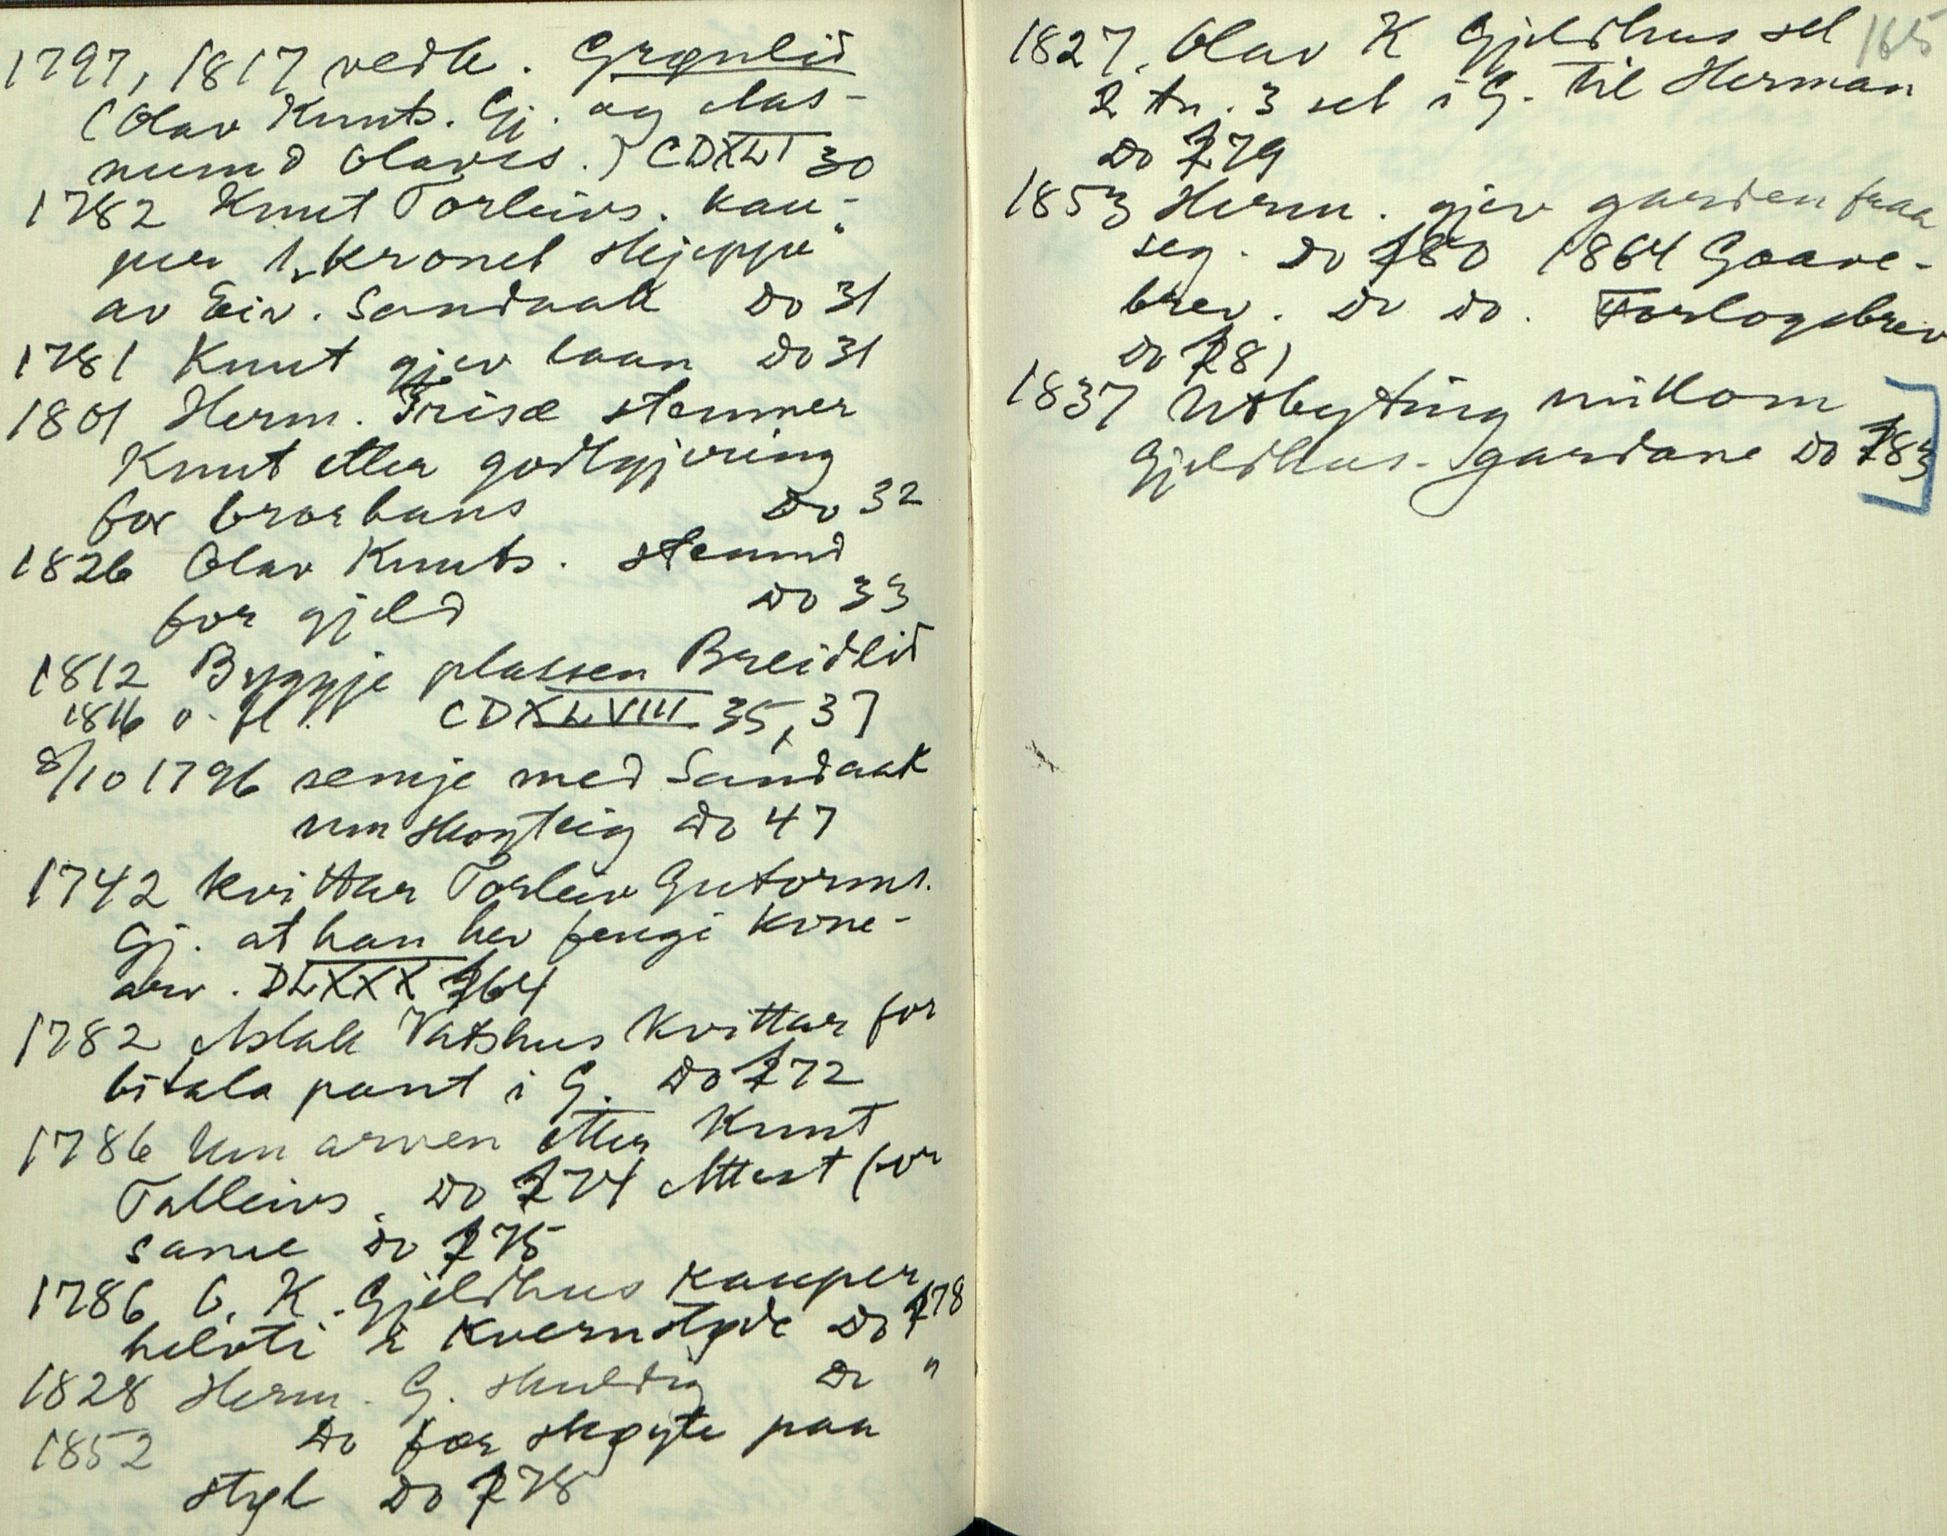 1797, 1817 vedk. Grønlid
(Olav Knuts. Gj. og Aas-
mund Olavss.) CDXLI 30
1782 Knut Torleivs. kau-
per "1 kronet skjeppe"
av Eiv. Sandaak Do 31
1781 Knut gjev laan Do 31
1801 Herm. Frisæ stemner
Knut etter godtgjering
for brorhans Do 32
1826 Olav Knuts. stemnd
for gjeld Do 33
1812 Byggje plassen Breidlid
1816 o. fl. CDXLVIII 35, 37
8/10 1796 semje med Sandaak
um skogteig Do 47
1742 kvittar Torleiv Gutorms.
Gj. at han hev fengi kone-
arv. DLXXX 264
1782 Aslak Vatshus kvittar for
bitala pant i G. Do 272
1786 Um arven etter Knut
Talleivs. Do 274 Attest for
same Do 275
1786 O. K. Gjeldhus kauper
helvti i Kvernstøde Do 278
1828 Herm. G. skuldig Do "
1852 Do fær skøyte paa
styk Do 278
165
1827. Olav K Gjeldhus sel
2 tn. 3 set i G. til Herman
Do 279
1853 Herm. gjev garden fraa
seg. Do 280 1864 Gaave-
brev. Do Do. Forlogsbrev
Do 281
1837 Utbyting millom
Gjeldhus-gardane Do 283